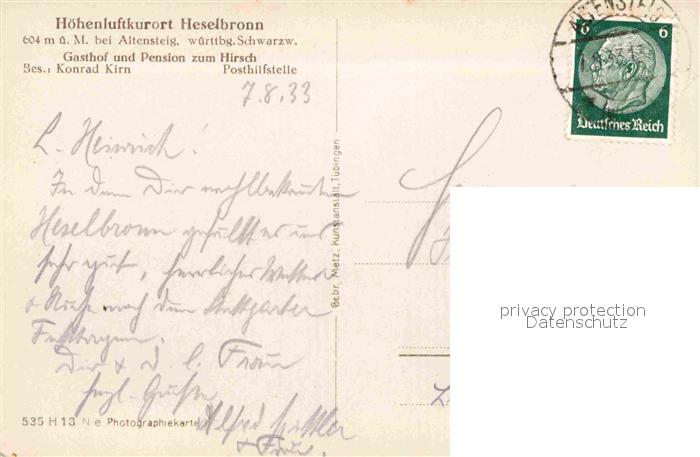 Höhenluftkurort Heselbronn
604 m ü. M. bei Altensteig, württbg. Schwarzw.
Gasthof und Pension zum Hirsch
Bes.: Konrad Kirn Posthilfstelle
7.8.33
L. Heinrich!
In dem Dir wohlbekannten
Heselbronn gefällt es uns
sehr gut, herrliches Wetter
& Ruhe nach den Stuttgarter
Festtagen.
Dir & d. l. Frau
herzl. Grüße
Alfred
& Frau.
535 H 13 Ne Photographiekarte
Gebr. Metz, Kunstanstalt, Tübingen
ALTENSTEIG
6 6
Deutsches Reich
privacy protection
Datenschutz